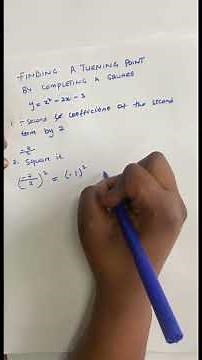 FINDING A TURNING POINT
BY COMPLETING A SQUARE
y = x² - 2x - 3
1. - Second coefficient of the second
term by 2
-2/2
2. Square it
(-2/2)² = (-1)²